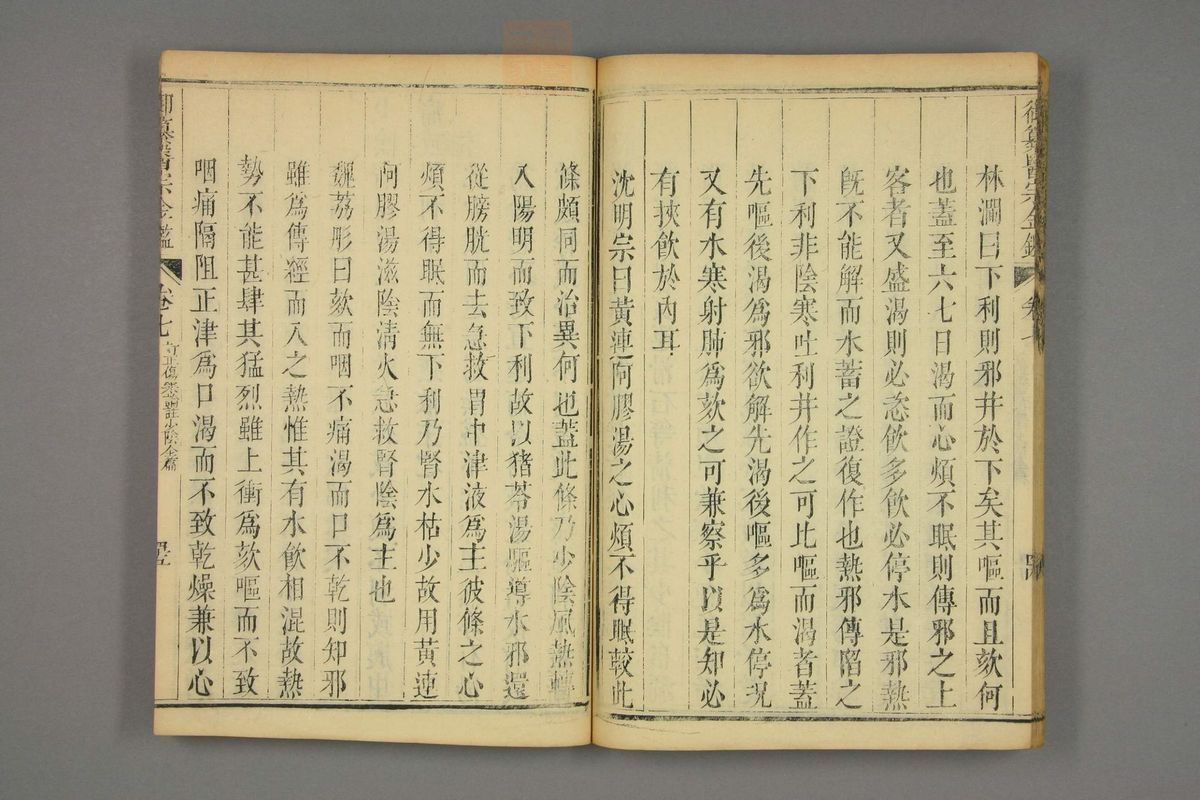 林瀾曰下利則邪井於下矣其嘔而且欬何
也蓋至六七日渴而心煩不眠則傳邪之上
客者又盛渴則必恣飲多飲必停水是邪熱
旣不能解而水蓄之證復作也熱邪傳陷之
下利非陰寒吐利井作之可比嘔而渴者蓋
先嘔後渴爲邪欲解先渴後嘔多爲水停況
又有水寒射肺爲欬之可兼察乎以是知必
有挾飲於內耳
沈明宗曰黃連阿膠湯之心煩不得眠較此
條頗同而治異何也蓋此條乃少陰風熱轉
入陽明而致下利故以猪苓湯嘔導水邪還
從膀胱而去急救胃中津液爲主彼條之心
煩不得眠而無下利乃腎水枯少故用黃連
阿膠湯滋陰淸火急救腎陰爲主也
魏荔彤曰欬而咽不痛渴而口不乾則知邪
雖爲傳經而入之熱惟其有水飮相混故熱
勢不能甚肆其猛烈雖上衝爲欬嘔而不致
咽痛隔阻正津爲口渴而不致乾燥兼以心
御纂醫宗金鑑 卷七